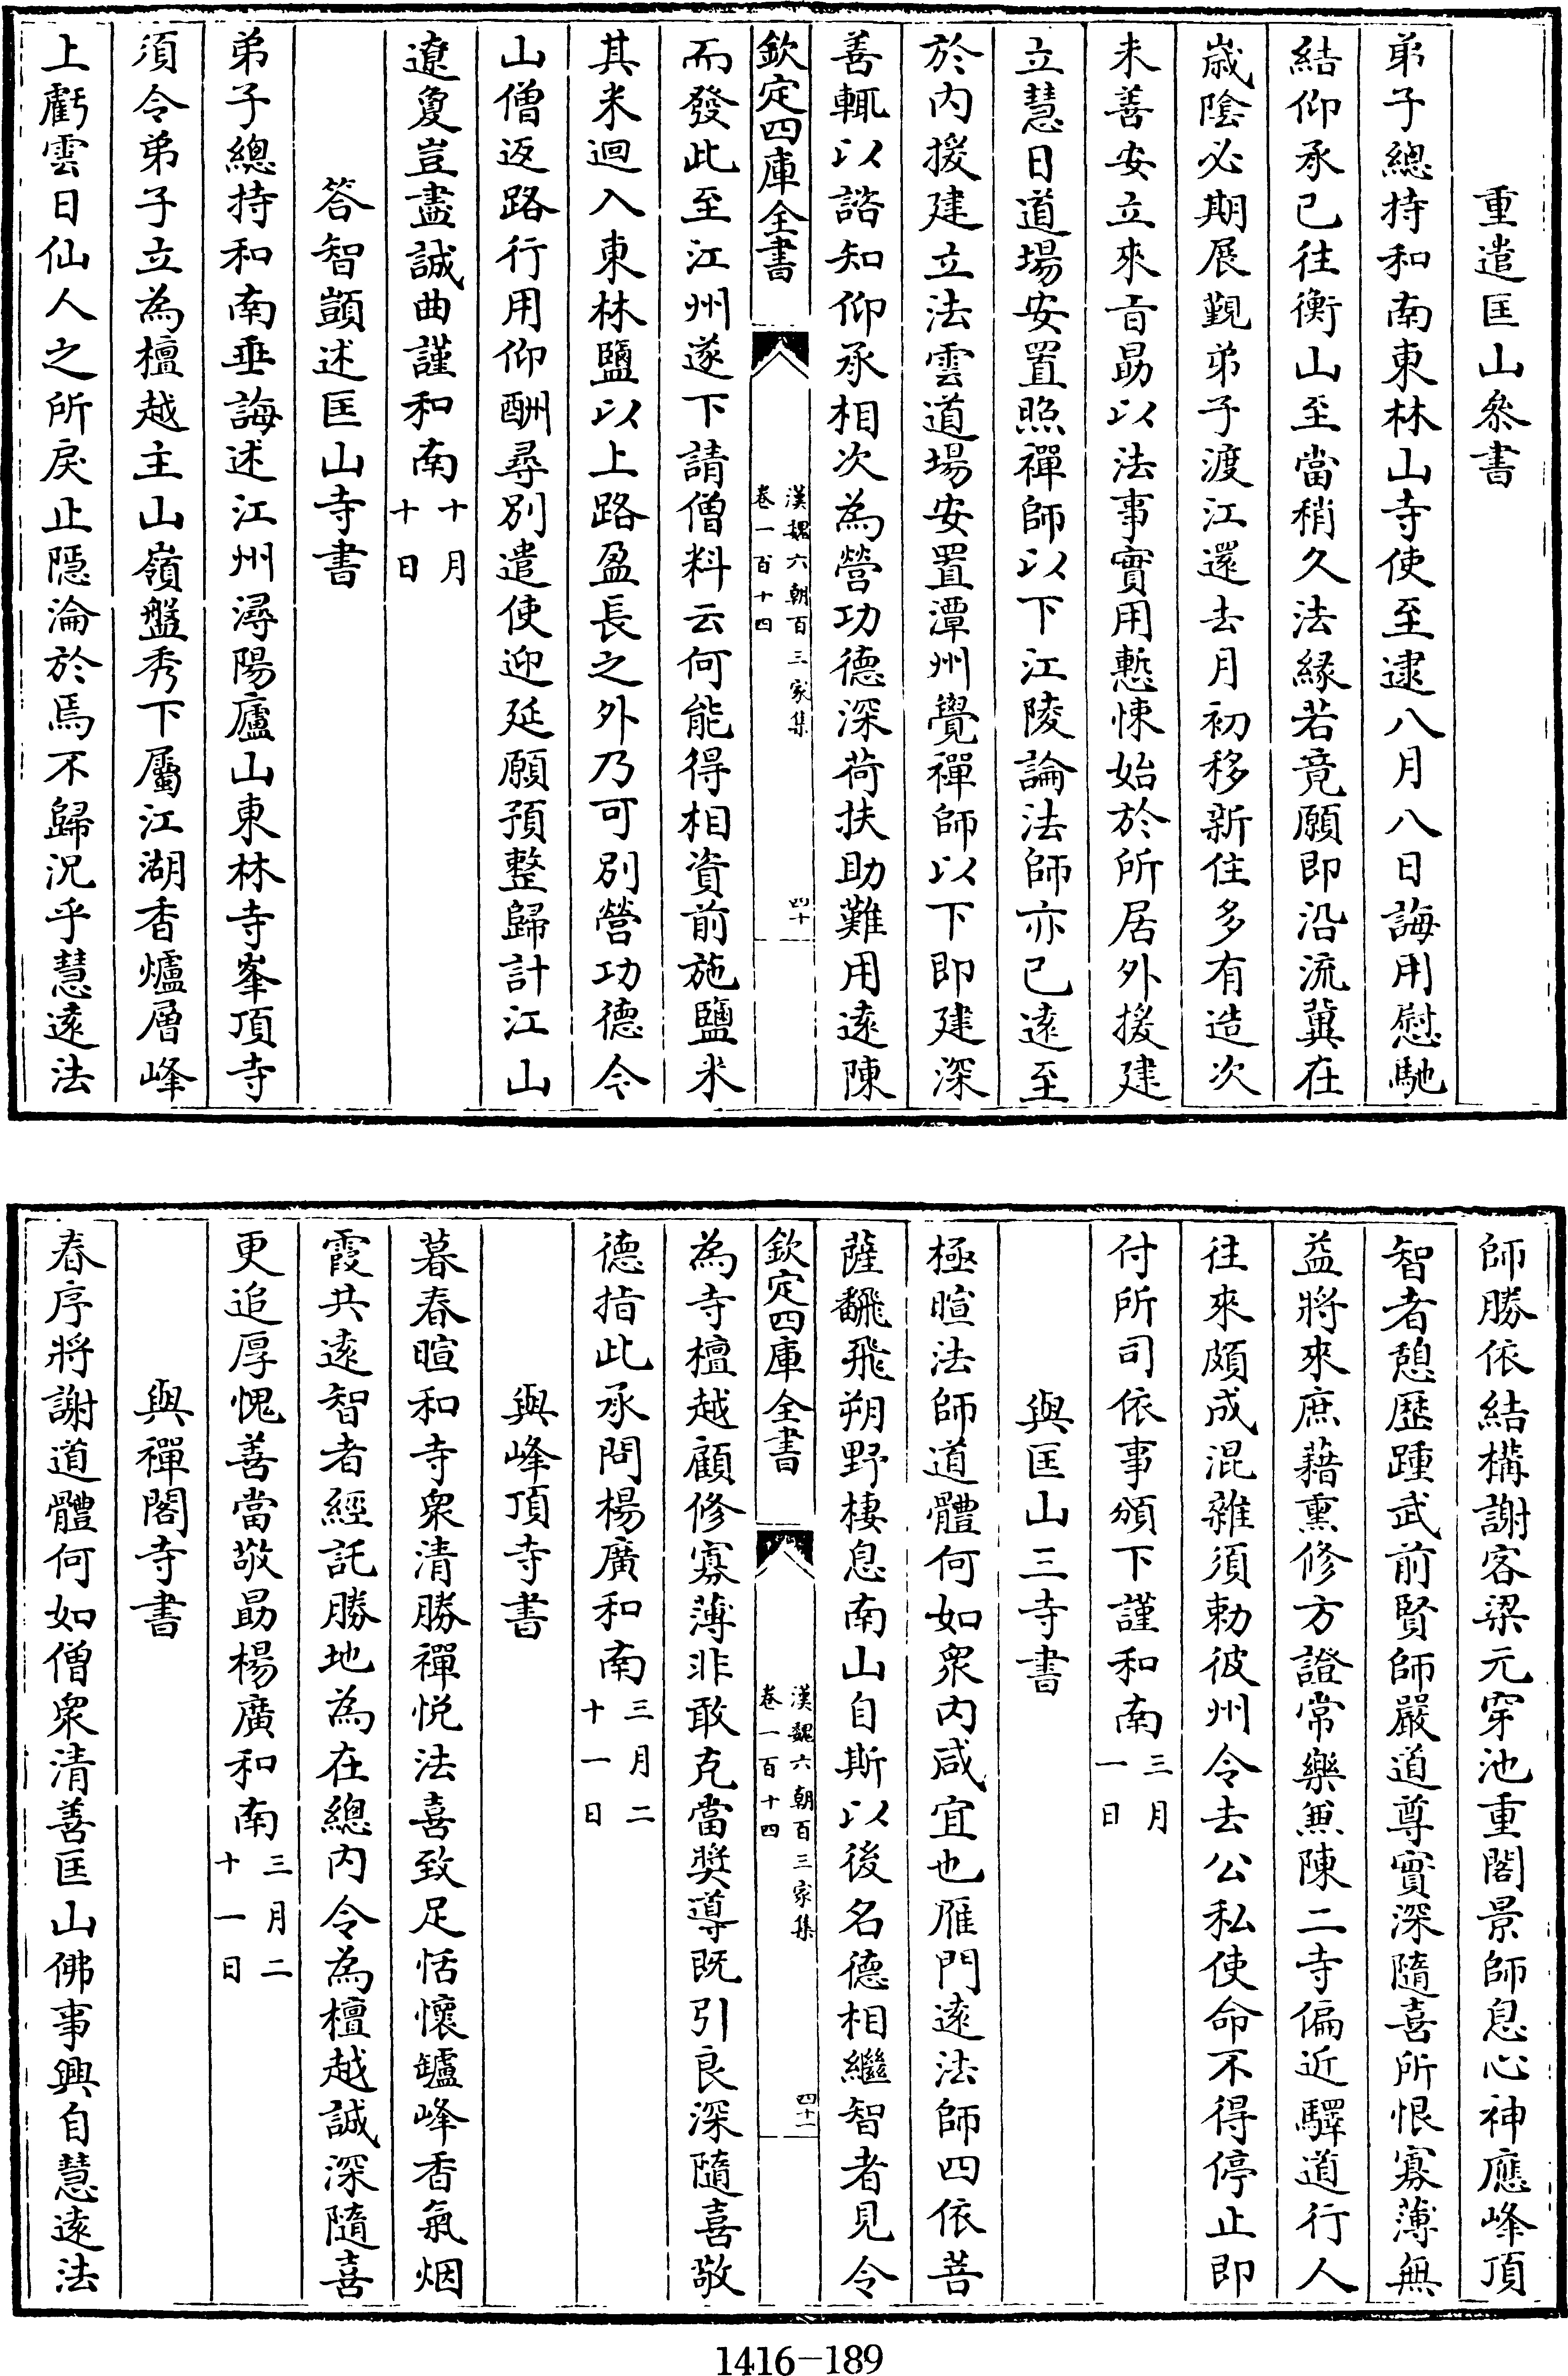 重遣匡山參書
弟子總持和南東林山寺使至逮八月八日誨用慰馳
結仰承已往衡山至當稍久法緣若竟願即沿流冀在
歲陰必期展覲弟子渡江還去月初移新住多有造次
未善安立來旨勗以法事實用慙悚始於所居外援建
立慧日道場安置照禪師以下江陵論法師亦已遠至
於内援建立法雲道場安置潭州覺禪師以下即建深
善輒以諮知仰承相次為營功德深荷扶助難用遠陳
欽定四庫全書
漢魏六朝百三家集
卷一百十四
四十
而發此至江州遂下請僧料云何能得相資前施鹽米
其米迴入東林鹽以上路盈長之外乃可別營功德令
山僧返路行用仰酬尋別遣使迎延願預整歸計江山
遼敻豈盡誠曲謹和南十月十日
答智顗述匡山寺書
弟子總持和南垂誨述江州潯陽廬山東林寺峯頂寺
須令弟子立為檀越主山嶺盤秀下屬江湖香爐層峰
上虧雲日仙人之所戾止隱淪於焉不歸況乎慧遠法
師勝依結構謝客梁元穿池重閣景師息心神應峰頂
智者憩歷踵武前賢師嚴道尊實深隨喜所恨寡薄無
益將來庶藉熏修方證常樂兼陳二寺偏近驛道行人
往來頗成混雜須勅彼州令去公私使命不得停止即
付所司依事頒下謹和南三月一日
與匡山三寺書
極暄法師道體何如衆内咸宜也雁門遠法師四依菩
薩飜飛朔野棲息南山自斯以後名德相繼智者見令
欽定四庫全書
漢魏六朝百三家集
卷一百十四
四十一
為寺檀越顧修寡薄非敢克當奨導既引良深隨喜敬
德指此承問楊廣和南三月二十一日
與峰頂寺書
暮春暄和寺衆清勝禪悦法喜致足恬懷罏峰香氣烟
霞共遠智者經託勝地為在總内令為檀越誠深隨喜
更追厚愧善當敬勗楊廣和南三月二十一日
與禪閣寺書
春序將謝道體何如僧衆清善匡山佛事興自慧遠法
1416-189